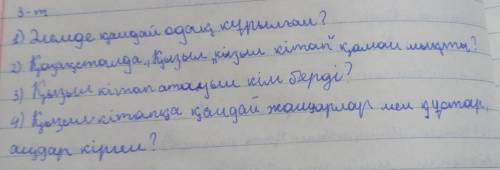 3-т
1) Әлемде қандай одақ құрылған?
2) Қазақстанда „Қызыл „қызыл кітап" қашан шықты?
3) Қызыл кітап атауын кім берді?
4) Қызыл кітапқа қандай жануарлар мен құстар,
аңдар кірген?